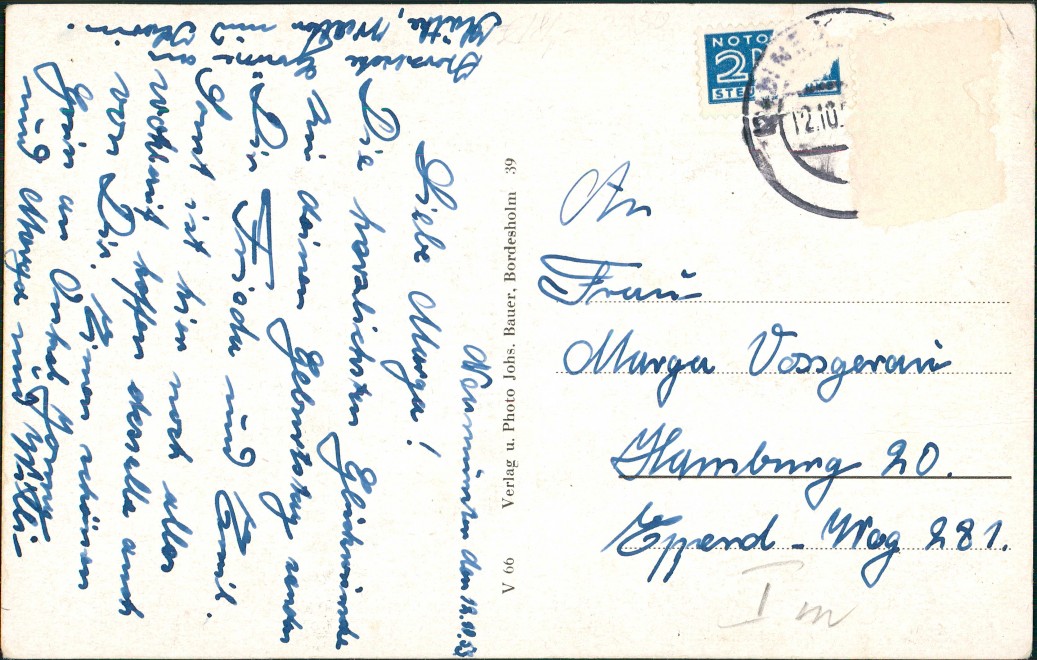 Neumünster den 12.10.53
Liebe Marga!
Die herzlichsten Glückwünsche
zu deinem Geburtstag senden
Dir Frieda und Emil.
Sonst ist hier noch alles
wohlauf hoffen dasselbe auch
von Dir. Einen schönen
Gruß an Onkel
und Marga und Willi
Herzliche Grüße
Käthe, Walter und
Verlag u. Photo Johs. Bauer, Bordesholm 39
V 66
NOTO
2
STEU
12.10.
An
Frau
Marga Vossgerau
Hamburg 20.
Eppend - Weg 281.
I m